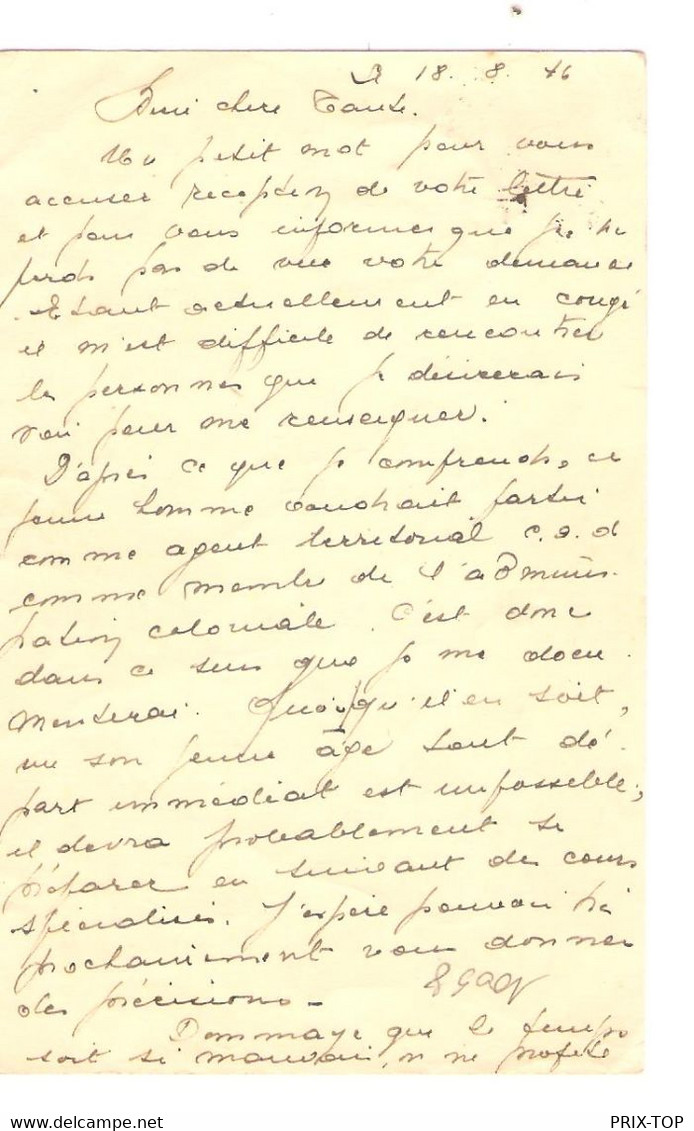 le 18. 8. 46
Bien chere Tante.
Un petit mot pour vous
accuser reception de votre lettre
et pour vous informer que je ne
perds pas de vue votre demande
. Etant actuellement en congé
il m'est difficile de rencontrer
les personnes que je désirerais
voir pour me renseigner.
D'après ce que je comprends, ce
jeune homme voudrait partir
comme agent territorial c.a.d
comme membre de l'adminis-
tration coloniale. C'est donc
dans ce sens que je me docu-
menterai. Quoiqu'il en soit,
vu son jeune âge tout dé-
part immédiat est impossible,
il devra probablement se
préparer en suivant des cours
spécialisés. J'espère pouvoir très
prochainement vous donner
des précisions.
Dommage que le temps
soit si mauvais, on ne profite
PRIX-TOP